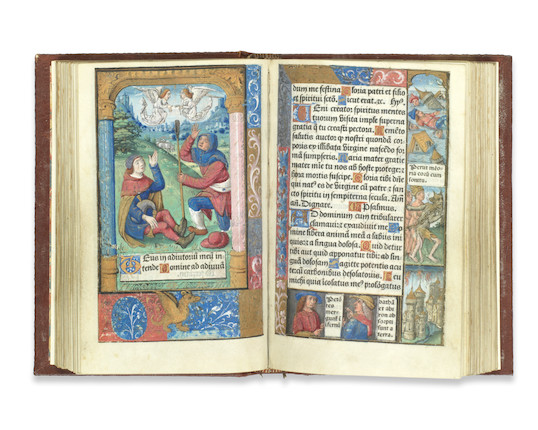 Eus in adiutoriũ meũ in
tende Domine ad adiuuã
dum me festina Gloria patri et filio
et spiritui scto. Sicut erat. ꝛc. Hyꝰ.
Eni creator spiritus mentes
tuorum visita imple superna
gratia q̃ tu creasti pectora. Memẽto
salutis auctor ꝙ nostri quondam cor
poris ex illibata virgine nascẽdo for
mã sumpseris. Maria mater gratie
mater mie tu nos ab hoste protege et
hora mortis suscipe. Gloria tibi dñe
qui natꝰ es de virgine cũ patre ⁊ san
cto spiritu in sempiterna secula. Amẽ
añ. Dignare. Psalmus.
AD dominum cum tribularer
clamaui: et exaudiuit me
mine libera animã meã a labiis ini
quis: et a lingua dolosa. Quid detur
tibi aut quid apponatur tibi: ad lin
guã dolosam Sagitte potentis acu
te: cum carbonibus desolatoriis. Heu
michi quia
Perii
eorum
sonitu.